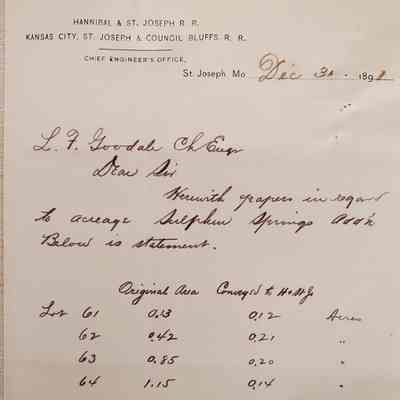 HANNIBAL & ST. JOSEPH R. R.
KANSAS CITY, ST. JOSEPH & COUNCIL BLUFFS. R. R.
CHIEF ENGINEER'S OFFICE,
St. Joseph, Mo. Dec 30. 189
L. F. Goodale Ch Engr
Dear Sir
Herewith papers in regard
to acreage Sulphur Springs Add'n
Below is statement.
Original Area Conveyed to H & St Jo
Lot 61 0.13 0.12 Acres
62 0.42 0.21 "
63 0.85 0.20 "
64 1.15 0.14 "